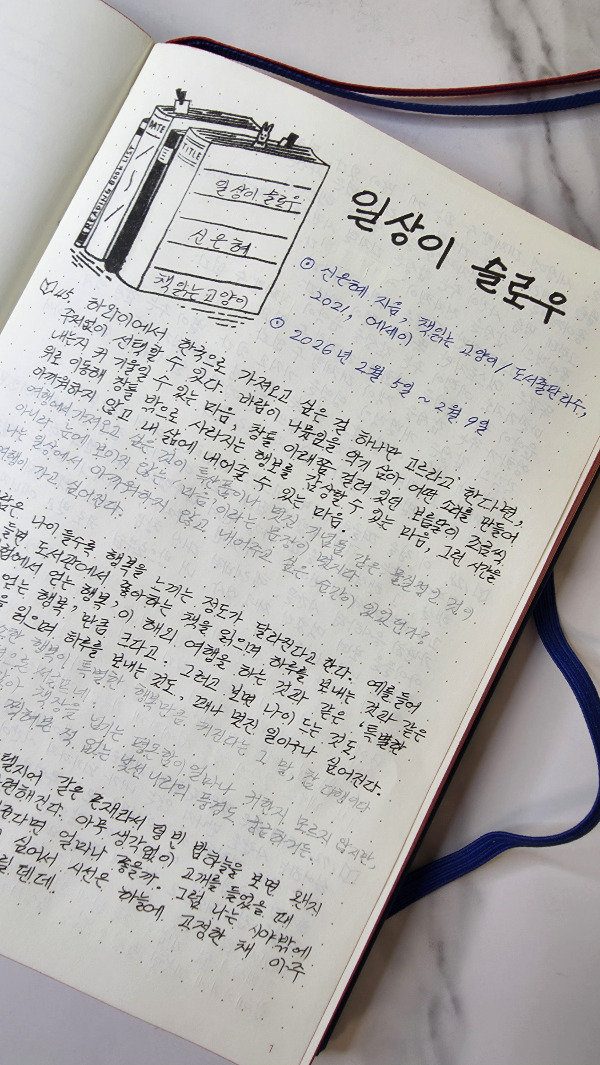 DATE
READING BOOK LIST
TITLE
일상이 슬로우
신은혜
책읽는고양이
일상이 슬로우
신은혜 지음, 책읽는 고양이/도서출판리수,
2021, 에세이
2026년 2월 5일 ~ 2월 9일
45, 하와이에서 한국으로 가져오고 싶은 걸 하나만 고르라고 한다면,
주저없이 선택할 수 있다. 바람이 나뭇잎을 악기 삼아 어떤 소리를 만들어
내는지 귀 기울일 수 있는 마음, 창틀 아래쯤 걸려 있던 보름달이 조금씩
위로 이동해 창틀 밖으로 사라지는 행보를 감상할 수 있는 마음, 그런 시간을
아까워하지 않고 내 삶에 내어줄 수 있는 마음.
여행에서 가져오고 싶은 것이 특산품이나 멋진 기념품 같은 물질적인 것이
아니라 눈에 보이지 않는 '마음'이라는 문장이 멋지다.
나는 일상에서 아까워하지 않고 내어주고 싶은 순간이 있었던가?
여행이 가고 싶어진다.
나이 들수록 행복을 느끼는 정도가 달라진다고 한다. 예를 들어
도서관에서 좋아하는 책을 읽으며 하루를 보내는 것과 같은
얻는 행복, 이 해외 여행을 하는 것과 같은 '특별한
행복, 만큼 크다고. 그러고 보면 나이 드는 것도,
읽으며 하루를 보내는 것도, 꽤나 멋진 일이구나 싶어진다.
행복이 특별한 행복만큼 커진다는 그 말, 참 다행이다
책장을 넘기는 평온함이 얼마나 귀한지 모르지 않지만,
적 없는 낯선 나라의 풍경도 궁금하거든.
같은 존재라서 텅 빈 밤하늘을 보면 왠지
편해진다. 아무 생각없이 고개를 들었을 때
다면 얼마나 좋을까. 그럼 나는 시야 밖에
싫어서 시선은 하늘에 고정한 채 아주
텐데.